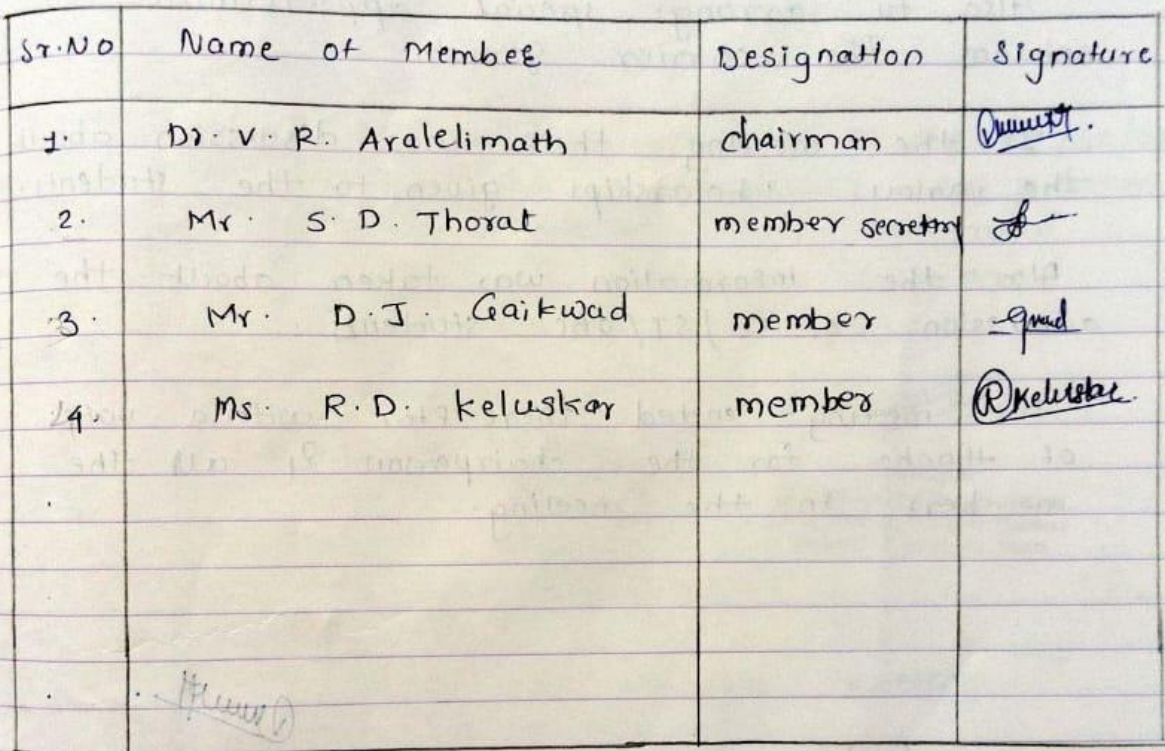 Sr.No Name of Membee Designation Signature
1. Dr V R. Aralelimath chairman
2. Mr. S. D. Thorat member secretary
3. Mr. D.J. Gaikwad member
4. Ms. R.D. keluskar member RKeluskar